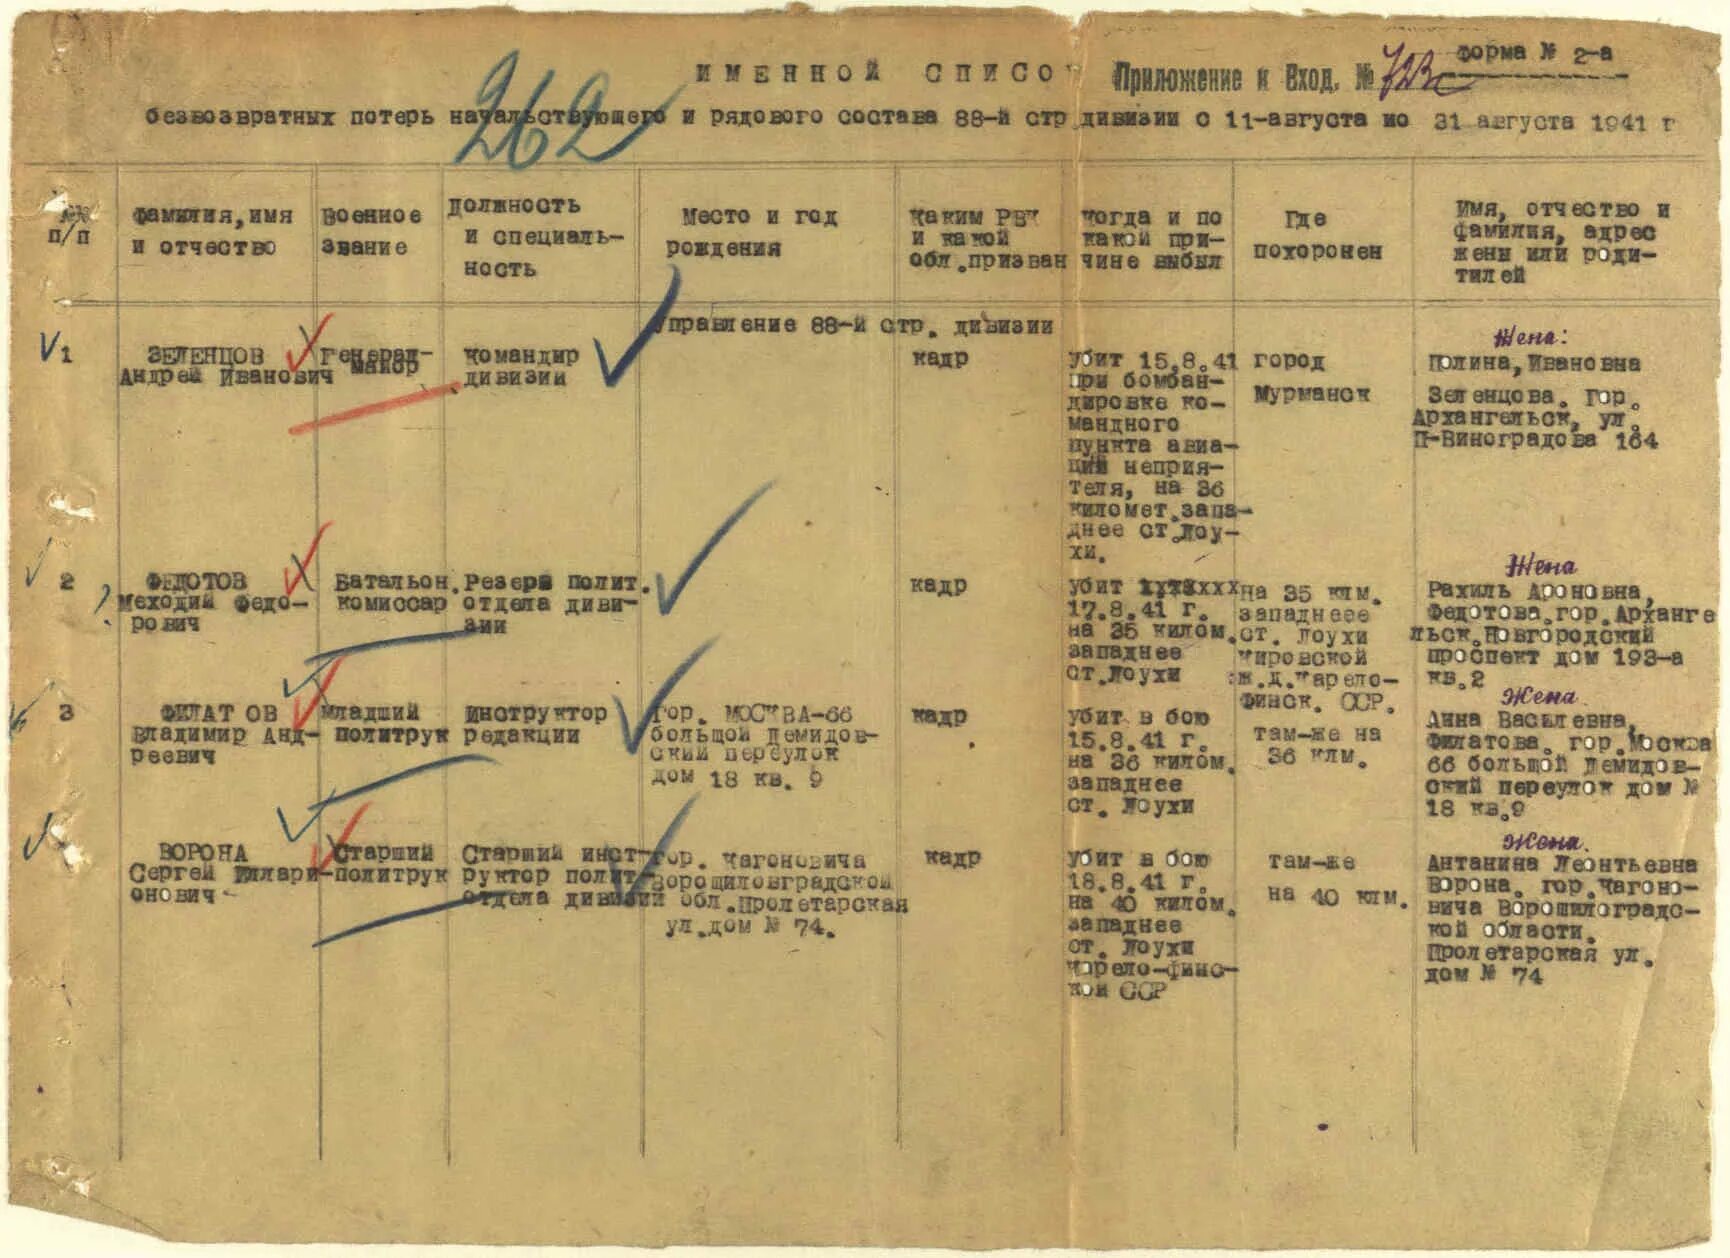 форма № 2-а
ИМЕННОЙ СПИСО
Приложение к Вход. №
262
безвозвратных потерь начальствующего и рядового состава 88-й стр дивизии с 11-августа по 31 августа 1941 г
№№
п/п
Фамилия, имя
и отчество
Военное
звание
Должность
и специаль-
ность
Место и год
рождения
Каким РВК
и какой
обл.призван
Когда и по
какой при-
чине выбыл
Где
похоронен
Имя, отчество и
фамилия, адрес
жены или роди-
телей
Управление 88-й стр. дивизии
1
ЗЕЛЕНЦОВ
Андрей Иванович
Генерал-
майор
Командир
дивизии
кадр
убит 15.8.41
при бомбан-
дировке ко-
мандного
пункта авиа-
ций неприя-
теля, на 36
километ.запа-
днее ст.Лоу-
хи.
город
Мурманск
Жена:
Полина, Ивановна
Зеленцова. Гор.
Архангельск, ул.
П-Виноградова 164
2
ФЕДОТОВ
Меходий Федо-
рович
Батальон.
комиссар
Резерв полит.
отдела диви-
зии
кадр
убит
17.8.41 г.
на 35 килом.
западнее
ст.Лоухи
На 35 клм.
западнеее
ст. Лоухи
Кировской
ж.д.Карело-
Финск. ССР.
Жена
Рахиль Ароновна,
Федотова.гор.Арханге
льск.Новгородский
проспект дом 193-а
кв.2
3
ФИЛАТОВ
Владимир Анд-
реевич
Младший
политрук
Инструктор
редакции
Гор. МОСКВА-66
большой Демидов-
ский переулок
дом 18 кв. 9
кадр
убит в бою
15.8.41 г.
на 36 килом.
западнее
ст. Лоухи
там-же на
36 клм.
Жена.
Анна Василевна,
Филатова. гор.Москва
66 большой Демидов-
ский переулок дом №
18 кв.9
ВОРОНА
Сергей Иллари-
онович
Старший
политрук
Старший инст-
руктор полит-
отдела дивизии
Гор. Кагоновича
Ворошиловградской
обл.Пролетарская
ул.дом № 74.
кадр
убит в бою
18.8.41 г.
на 40 килом.
западнее
ст. Лоухи
Карело-финс-
кой ССР
там-же
на 40 клм.
Жена.
Антанина Леонтьевна
Ворона. гор.Кагоно-
вича Ворошилоградс-
кой области.
Пролетарская ул.
дом № 74